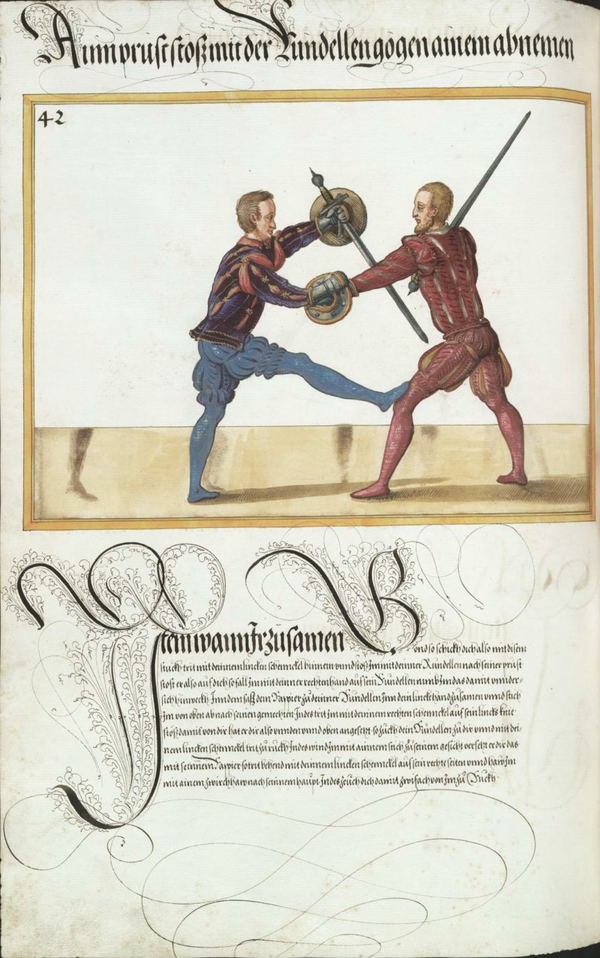 Ain prust stoß mit der Rundellen gögen ainem abnemen
42
Item wann Ir zusamen Bind so schickh dich also mit disem
stuckh trit mit deinnem linckhen schennckel hinnein vnnd stoß Im mit deinner Rundellen nach seiner prust
stost er also auf dich so fall Im mit deinner rechten hand auf sein Rundellen nimb Im das damit vonn der
sich hinweckh Inn dem faß dein Rapier zu deinner Rundellen Inn dein linckh hand zusamen vnnd stich
Im von oben ab nach seinen gemechten Indes trit Im mit deinnem rechten schennckel auf sein linckh knie
stoß damit von dir hat er dir also vnnden vnnd oben angesetzt so zuckh dein Rundellen zu dir vnnd mit dei
nem linckhen schennckel trit zu ruckh Indes wind Im mit ainnem stich zu seinem gesicht versetzt er dir das
mit seinnem Rapier so trit behend mit deinnem linckhen schennckel auf sein rechte seiten vnnd haw Im
mit ainem zwirch haw nach seinnem haupt Indes zeuch dich damit zwifach von Im zu Ruckh